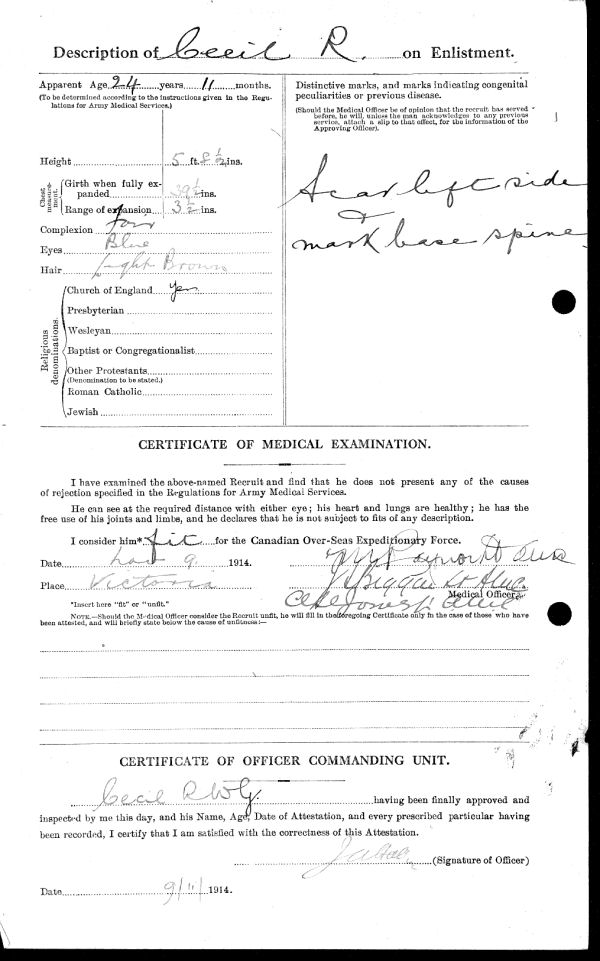 Description of Cecil R. on Enlistment.
Apparent Age 24 years 11 months.
(To be determined according to the instructions given in the Regulations for Army Medical Services.)
Height 5 ft. 8 ½ ins.
Chest measurement.
Girth when fully expanded 39½ ins.
Range of expansion 3½ ins.
Complexion fair
Eyes Blue
Hair Light Brown
Religious denominations.
Church of England yes
Presbyterian
Wesleyan
Baptist or Congregationalist
Other Protestants
(Denomination to be stated.)
Roman Catholic
Jewish
Distinctive marks, and marks indicating congenital
peculiarities or previous disease.
(Should the Medical Officer be of opinion that the recruit has served
before, he will, unless the man acknowledges to any previous
service, attach a slip to that effect, for the information of the
Approving Officer).
Scar left side
+
mark base spine
CERTIFICATE OF MEDICAL EXAMINATION.
I have examined the above-named Recruit and find that he does not present any of the causes
of rejection specified in the Regulations for Army Medical Services.
He can see at the required distance with either eye; his heart and lungs are healthy; he has the
free use of his joints and limbs, and he declares that he is not subject to fits of any description.
I consider him* fit for the Canadian Over-Seas Expeditionary Force.
Date Nov 9 1914.
Place Victoria
Medical Officer.
*Insert here "fit" or "unfit."
NOTE.—Should the Medical Officer consider the Recruit unfit, he will fill in the foregoing Certificate only in the case of those who have
been attested, and will briefly state below the cause of unfitness:—
CERTIFICATE OF OFFICER COMMANDING UNIT.
Cecil R having been finally approved and
inspected by me this day, and his Name, Age, Date of Attestation, and every prescribed particular having
been recorded, I certify that I am satisfied with the correctness of this Attestation.
(Signature of Officer)
Date 9/11/ 1914.